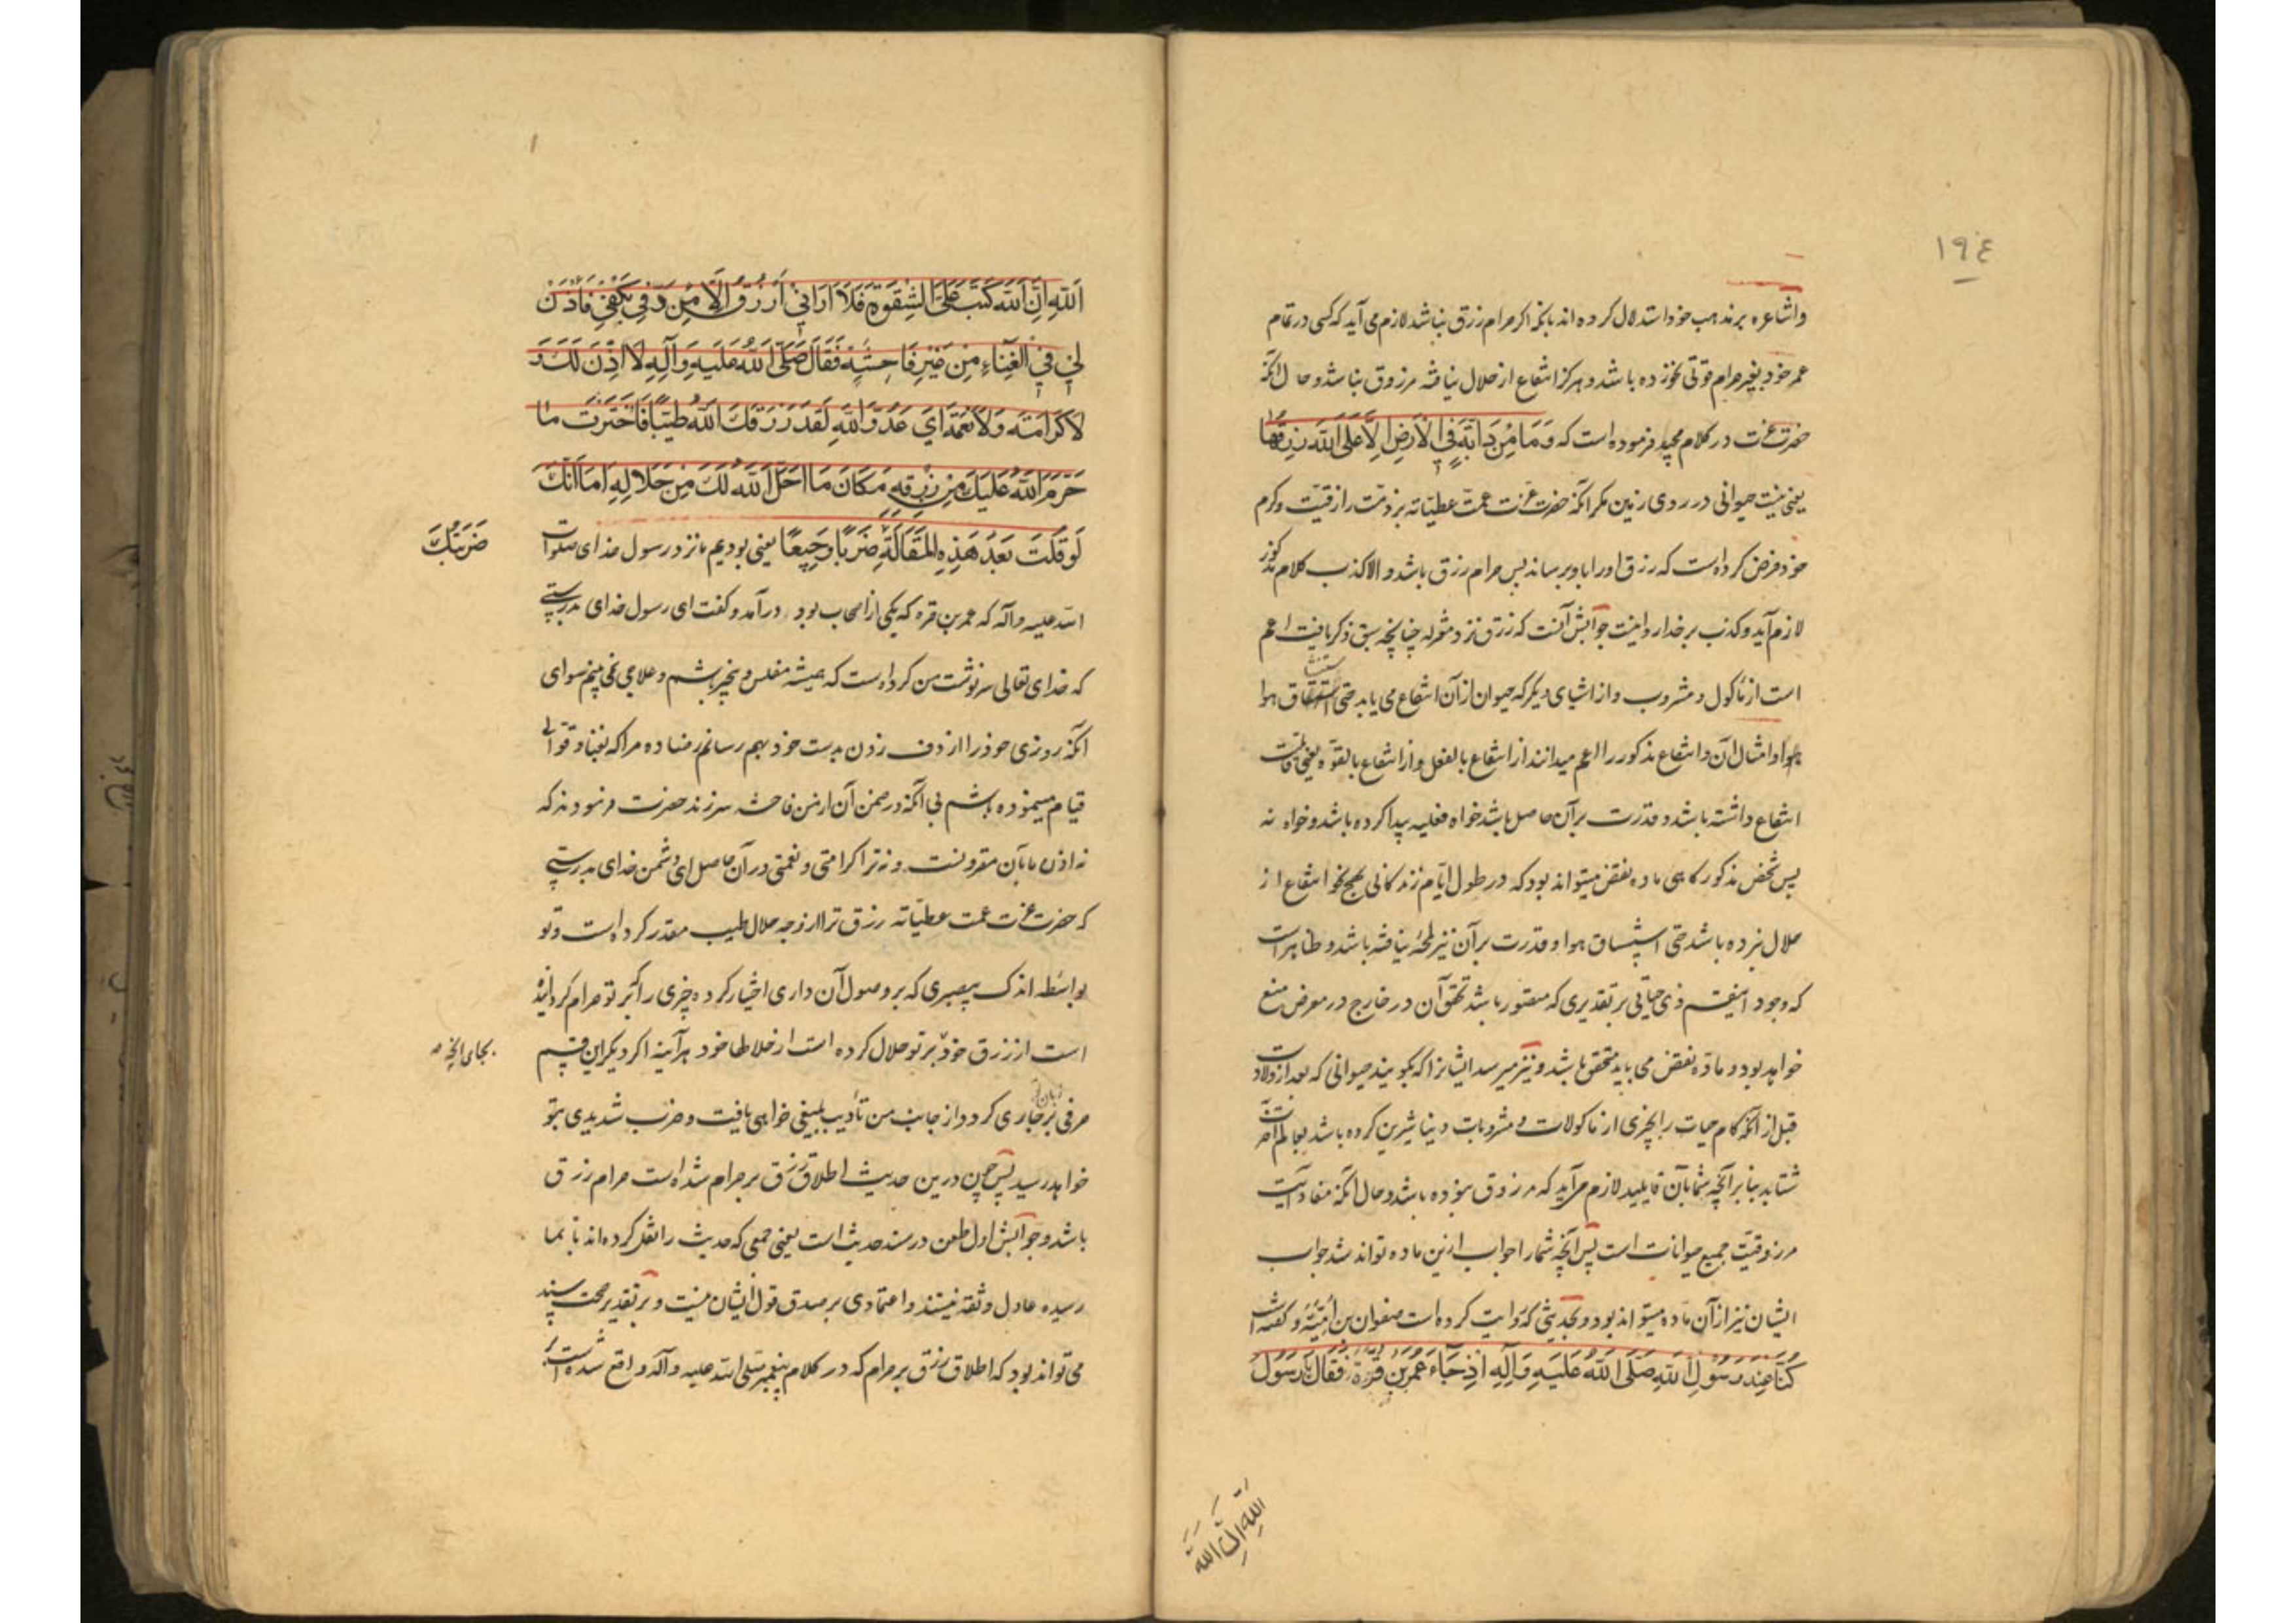 ١٩٤
واشاعره بر مذهب خود استدلال کرده اند بانکه اکر حرام رزق نباشد لازم می آید که کسی در تمام
عمر خود بغیر حرام قوتی نخورده باشد و هرکز انتفاع از حلال نیافته مرزوق نباشد و حال آنکه
حضرت عزت در کلام مجید فرموده است که وَمَا مِنْ دَابَّةٍ فِي الْأَرْضِ إِلَّا عَلَى اللَّهِ رِزْقُهَا
یعنی نیست حیوانی در روی زمین مکر آنکه حضرت عزت عمت عطیاته بر ذمت رازقیت و کرم
خود فرض کرده است که رزق او را باو برساند پس حرام رزق باشد و الا کذب کلام مذکور
لازم آید و کذب بر خدا روا نیست جوابش آنست که رزق نزد معتزله چنانچه سبق ذکر یافت اعم
است از مأکول و مشروب و از اشیای دیکر که حیوان از آن انتفاع می یابد حتی استنشاق هوا
هوا و امثال آن و انتفاع مذکور را اعم میدانند از انتفاع بالفعل و از انتفاع بالقوه یعنی قابلیت
انتفاع داشته باشد و قدرت بر آن حاصل باشد خواه فعلیه پیدا کرده باشد و خواه نه
پس شخص مذکور کاهی ماده نقض میتواند بود که در طول ایام زندکانی بهیچ نحو انتفاع از
حلال نبرده باشد حتی استنشاق هوا و قدرت بر آن نیز لمحهٔ نیافته باشد و ظاهر است
که وجود اینقسم ذی حیاتی بر تقدیری که متصور باشد تحقق آن در خارج در معرض منع
خواهد بود و ماده نقض می باید متحقق باشد و نیز میرسد ایشانرا که بکویند حیوانی که بعد از ولادت
قبل از آنکه کام حیات را بچیزی از ماکولات و مشروبات دنیا شیرین کرده باشد بعالم آخرت
شتابد بنا بر آنچه شما بآن قایلید لازم می آید که مرزوق نبوده باشد و حال آنکه مفاد آیت
مرزوقیت جمیع حیوانات است پس آنچه شما را جواب ازین ماده تواند شد جواب
ایشان نیز از آن ماده میتواند بود و بحدیثی که روایت کرده است صفوان بن اُمَیَّة و کفته است
كُنَّا عِنْدَ رَسُولِ اللَّهِ صَلَّى اللَّهُ عَلَيْهِ وَآلِهِ اِذْ جَاءَ عُمَرُ بْنُ قُرَّةَ فَقَالَ يَا رَسُولَ
اللَّهِ اِنَّ اللَّهَ
اَللَّهِ اِنَّ اللَّهَ كَتَبَ عَلَيَّ الشِّقْوَةَ فَلَا اَرَانِي اُرْزَقُ اِلَّا مِنْ دَفِّي بِكَفِّي فَأْذَنْ
لِي فِي الْغِنَاءِ مِنْ غَيْرِ فَاحِشَةٍ فَقَالَ صَلَّى اللَّهُ عَلَيْهِ وَآلِهِ لَا اِذْنَ لَكَ وَ
لَا كَرَامَةَ وَلَا نِعْمَةَ اَيْ عَدُوَّ اللَّهِ لَقَدْ رَزَقَكَ اللَّهُ طَيِّبًا فَاخْتَرْتَ مَا
حَرَّمَ اللَّهُ عَلَيْكَ مِنْ رِزْقِهِ مَكَانَ مَا اَحَلَّ اللَّهُ لَكَ مِنْ حَلَالِهِ اَمَا اَنَّكَ
لَوْ قُلْتَ بَعْدَ هَذِهِ الْمَقَالَةِ ضَرْبًا وَجِيعًا یعنی بودیم ما نزد رسول خدای صلوات
ضَرَبْتُكَ
الله علیه و آله که عمر بن قره که یکی از اصحاب بود درآمد و کفت ای رسول خدای بدرستی
که خدای تعالی سرنوشت من کرده است که همیشه مفلس و بی‌چیز باشم و علاجی نمی بینم سوای
آنکه روزی خود را از دف زدن بدست خود بهم رسانم رضا ده مرا که بغنا و قوالی
قیام مینموده باشم بی آنکه در ضمن آن از من فاحشه سر زند حضرت فرمودند که
نه اذن ما بآن مقرونست و نه ترا کرامتی و نعمتی در آن حاصل ای دشمن خدای بدرستی
که حضرت عزت عمت عطیاته رزق ترا از وجه حلال طیب مقدر کرده است و تو
بواسطه اندک بی‌صبری که بر وصول آن داری اختیار کرده چیزی را که بر تو حرام کردانیده
است از رزق خود بر تو حلال کرده است از حلالها خود هر آینه اکر دیکر این قسم
بجای آنچه
حرفی بر زبان تو جاری کردد از جانب من تأدیب بلیغی خواهی یافت و ضرب شدیدی بتو
خواهد رسید پس چون درین حدیث اطلاق رزق بر حرام شده است حرام رزق
باشد و جوابش اول طعن در سند حدیث است یعنی جمعی که حدیث را نقل کرده اند تا بما
رسیده عادل و ثقه نیستند و اعتمادی بر صدق قول ایشان نیست و بر تقدیر صحت سند
می تواند بود که اطلاق رزق بر حرام که در کلام پیغمبر صلی الله علیه و آله واقع شده است